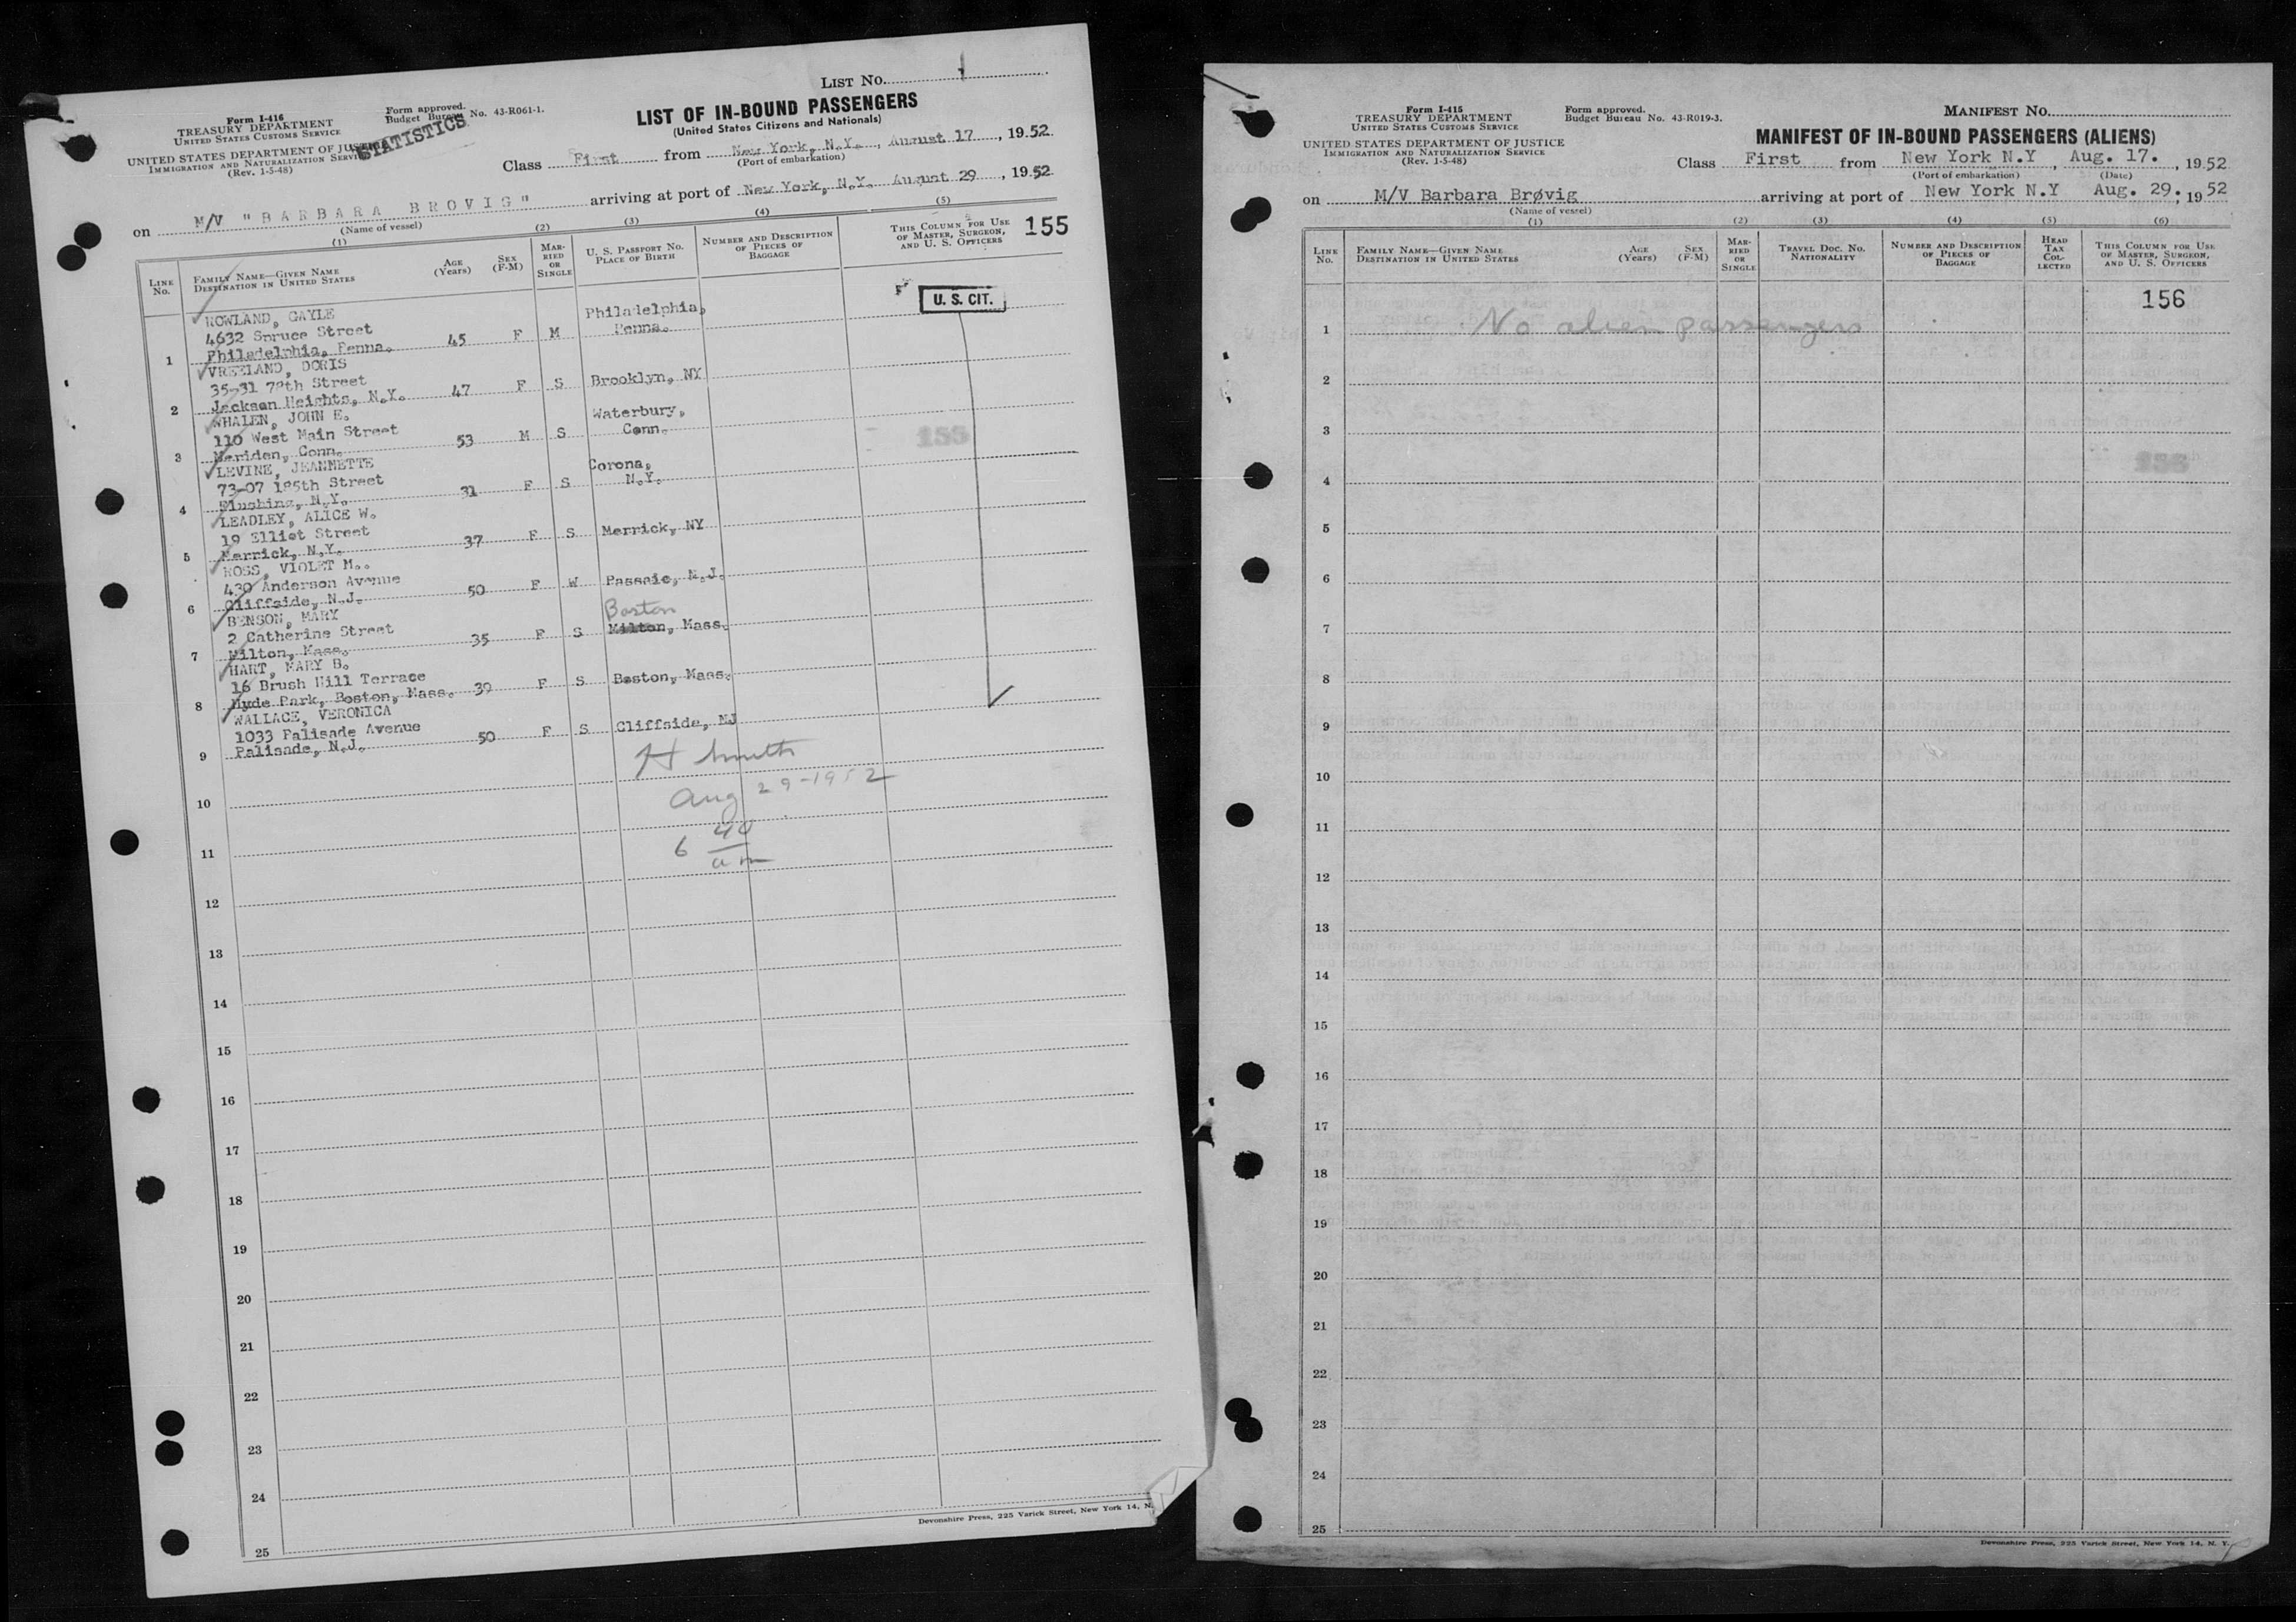 LIST No. 1
Form I-416
TREASURY DEPARTMENT
UNITED STATES CUSTOMS SERVICE
UNITED STATES DEPARTMENT OF JUSTICE
IMMIGRATION AND NATURALIZATION SERVICE
(Rev. 1-5-48)
Form approved.
Budget Bureau No. 43-R061-1.
STATISTICS
LIST OF IN-BOUND PASSENGERS
(United States Citizens and Nationals)
Class First from New York, N.Y., August 17, 1952
(Port of embarkation)
on M/V "BARBARA BROVIG" arriving at port of New York, N.Y. August 29, 1952
(Name of vessel)
(1) (2) (3) (4) (5)
LINE No.
FAMILY NAME—GIVEN NAME
DESTINATION IN UNITED STATES
AGE (Years)
SEX (F-M)
MARRIED OR SINGLE
U. S. PASSPORT No.
PLACE OF BIRTH
NUMBER AND DESCRIPTION OF PIECES OF BAGGAGE
THIS COLUMN FOR USE OF MASTER, SURGEON, AND U. S. OFFICERS
155
U. S. CIT.
ROWLAND, GAYLE
4632 Spruce Street
1 Philadelphia, Penna. 45 F M Philadelphia, Penna.
VREELAND, DORIS
35-31 78th Street
2 Jackson Heights, N.Y. 47 F S Brooklyn, NY
WHALEN, JOHN E.
110 West Main Street
3 Meriden, Conn. 53 M S Waterbury, Conn.
LEVINE, JEANNETTE
73-07 185th Street
4 Flushing, N.Y. 31 F S Corona, N.Y.
LEADLEY, ALICE W.
19 Elliot Street
5 Merrick, N.Y. 37 F S Merrick, NY
ROSS, VIOLET M..
430 Anderson Avenue
6 Cliffside, N.J. 50 F W Passaic, N.J.
BENSON, MARY
2 Catherine Street
Boston
7 Milton, Mass. 35 F S Milton, Mass.
HART, MARY B.
16 Brush Hill Terrace
8 Hyde Park, Boston, Mass. 39 F S Boston, Mass.
WALLACE, VERONICA
1033 Palisade Avenue
9 Palisade, N.J. 50 F S Cliffside, NJ
H Smith
Aug 29-1952
6 40 am
10
11
12
13
14
15
16
17
18
19
20
21
22
23
24
25
Devonshire Press, 225 Varick Street, New York 14, N.
Form I-415
TREASURY DEPARTMENT
UNITED STATES CUSTOMS SERVICE
UNITED STATES DEPARTMENT OF JUSTICE
IMMIGRATION AND NATURALIZATION SERVICE
(Rev. 1-5-48)
Form approved.
Budget Bureau No. 43-R019-3.
MANIFEST No.
MANIFEST OF IN-BOUND PASSENGERS (ALIENS)
Class First from New York N.Y, Aug. 17., 1952
(Port of embarkation) (Date)
on M/V Barbara Brøvig arriving at port of New York N.Y Aug. 29; 1952
(Name of vessel)
(1) (2) (3) (4) (5) (6)
LINE No.
FAMILY NAME—GIVEN NAME
DESTINATION IN UNITED STATES
AGE (Years)
SEX (F-M)
MARRIED OR SINGLE
TRAVEL DOC. No.
NATIONALITY
NUMBER AND DESCRIPTION OF PIECES OF BAGGAGE
HEAD TAX COLLECTED
THIS COLUMN FOR USE OF MASTER, SURGEON, AND U. S. OFFICERS
156
1 No alien passengers
2
3
4
5
6
7
8
9
10
11
12
13
14
15
16
17
18
19
20
21
22
23
24
25
Devonshire Press, 225 Varick Street, New York 14, N. Y.